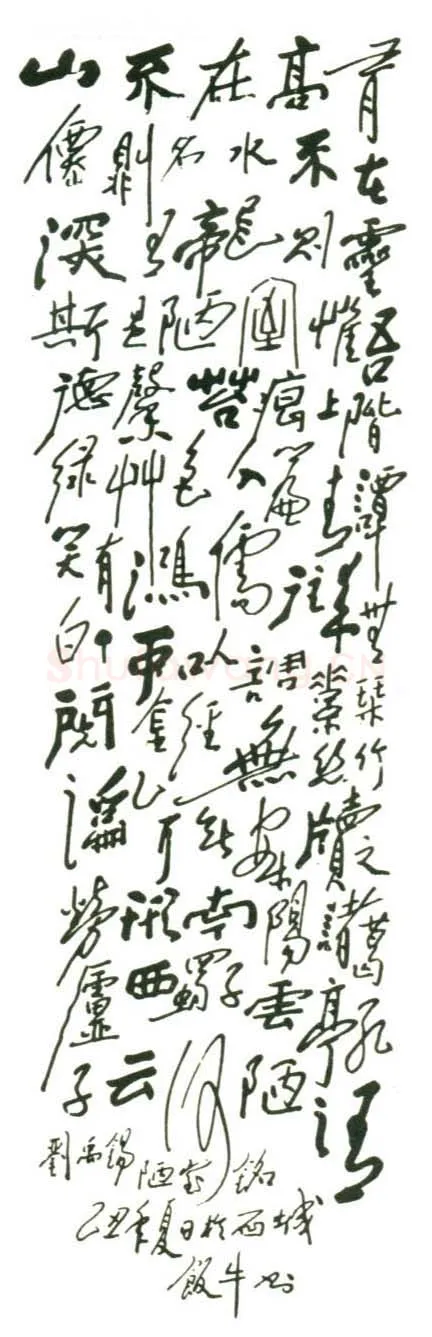 山不在高有
僊則名水不在
深有龍則靈
斯是陋室惟吾
德馨苔痕上階
綠艸色入簾青譚
笑有鴻儒往來無
白丁可以調素琴
閱金經無絲竹
亂耳無案牘之
勞形南陽諸葛
廬西蜀子雲亭孔
子云何陋有
劉禹錫陋室銘
己丑年夏日於西城
飯牛
shufawang.CN